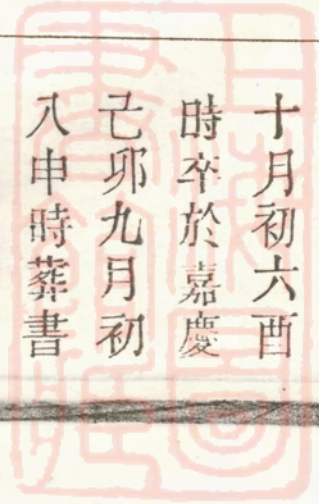 十月初六酉
時卒於嘉慶
己卯九月初
八申時葬書